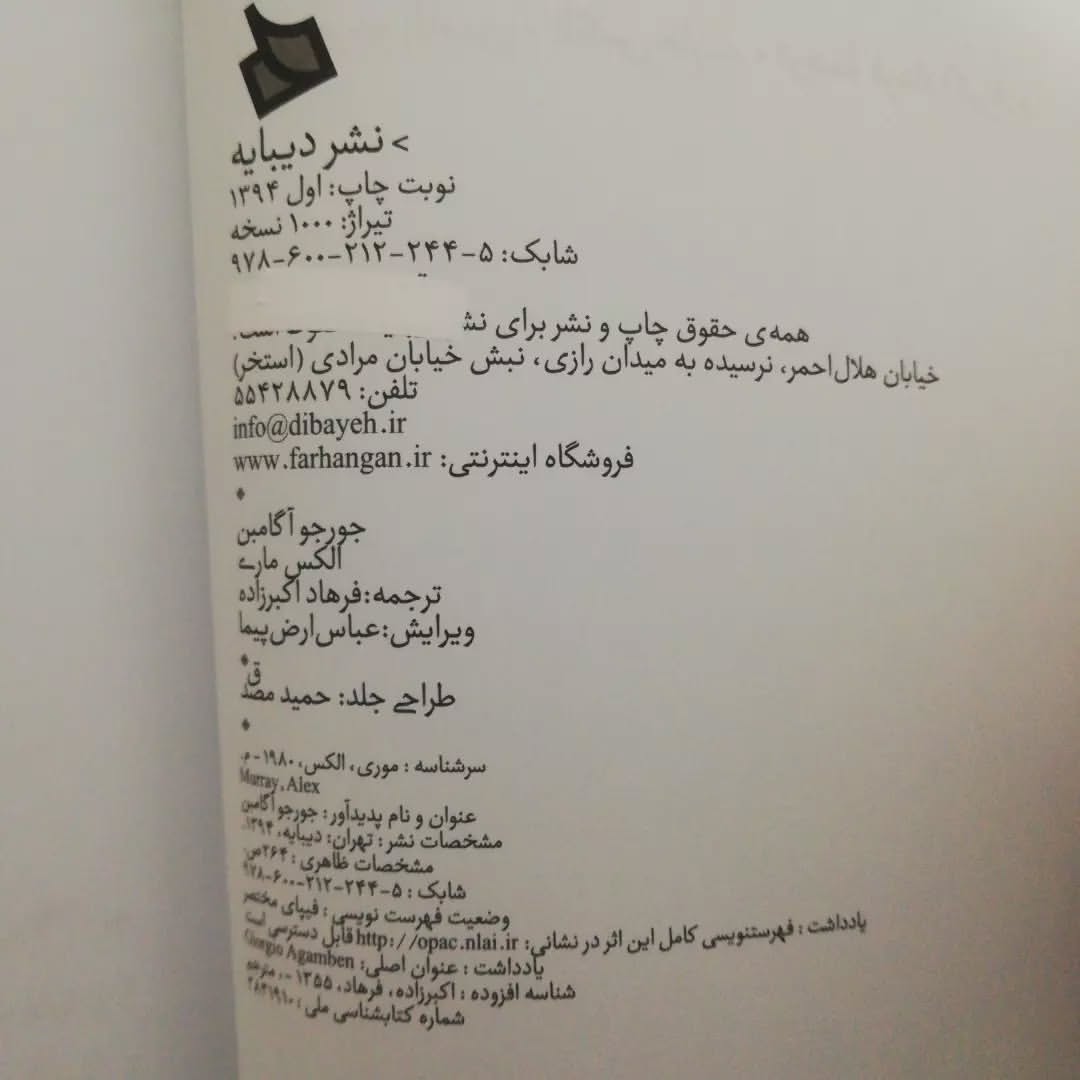 > نشر دیبایه
نوبت چاپ: اول ۱۳۹۴
تیراژ: ۱۰۰۰ نسخه
شابک: ۵-۲۴۴-۲۱۲-۶۰۰-۹۷۸
همه‌ی حقوق چاپ و نشر برای
خیابان هلال‌احمر، نرسیده به میدان رازی، نبش خیابان مرادی (استخر)
تلفن: ۵۵۴۲۸۸۷۹
info@dibayeh.ir
فروشگاه اینترنتی: www.farhangan.ir
جورجو آگامبن
الکس ماری
ترجمه:فرهاد اکبرزاده
ویرایش:عباس ارض‌پیما
طراحی جلد: حمید مصدق
سرشناسه : موری، الکس، ۱۹۸۰-م.
Murray, Alex
عنوان و نام پدیدآور: جورجو آگامبن
مشخصات نشر: تهران: دیبایه، ۱۳۹۴.
مشخصات ظاهری : ۲۶۴ص.
شابک : ۵-۲۴۴-۲۱۲-۶۰۰-۹۷۸
وضعیت فهرست نویسی : فیپای مختصر
یادداشت : فهرستنویسی کامل این اثر در نشانی: http://opac.nlai.ir قابل دسترسی است
یادداشت : عنوان اصلی: Giorgio Agamben
شناسه افزوده : اکبرزاده، فرهاد، ۱۳۵۵ -، مترجم
شماره کتابشناسی ملی :